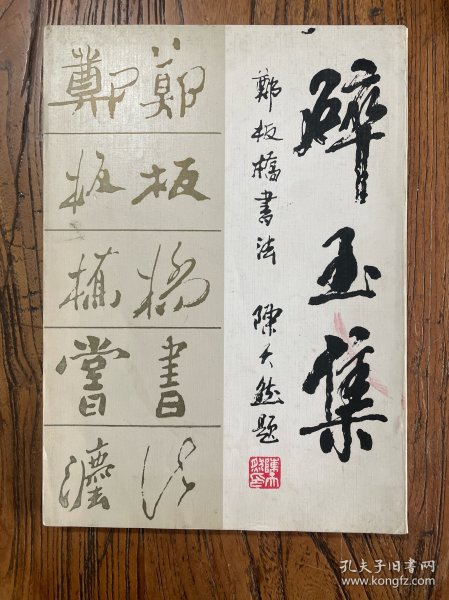 碎玉集
鄭板橋書法 陳大羽題
鄭板橋書法
鄭板橋書灋
孔夫子旧书网
www.kongfz.com